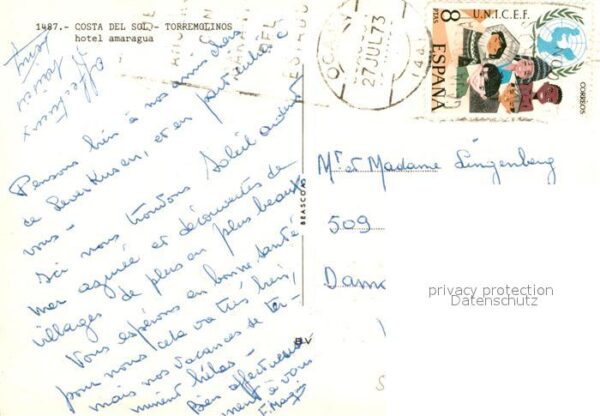 1487.- COSTA DEL SOL - TORREMOLINOS
hotel amaragua
Pensons bien à nos amis chers
de Leverkusen, et en particulier à
vous -
Ici nous trouvons Soleil ardent
mer agitée et découvertes de
villages de plus en plus beaux
Vous espérons en bonne santé
pour nous cela va très bien,
mais nos vacances se ter-
minent hélas -
Bien affectueuse
ment à vous
affectueux
BEASCOA
B.V
OCAÑA
27 JUL 73
8
PTAS
U.N.I.C.E.F.
ESPAÑA
CORREOS
Mr et Madame Lingenberg
509
Dam
privacy protection
Datenschutz